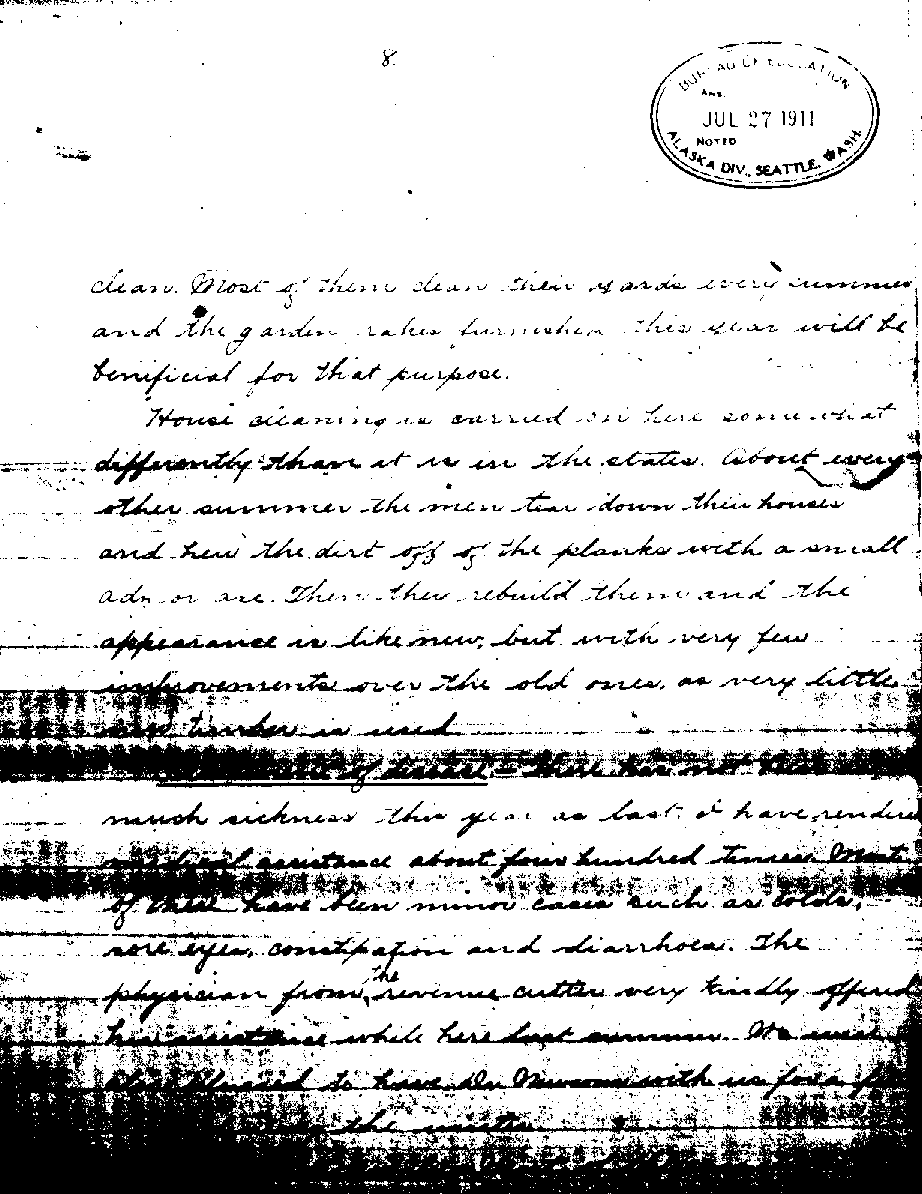 8.
BUREAU OF EDUCATION
ANS.
JUL 27 1911
NOTED
ALASKA DIV., SEATTLE, WASH.
clean. Most of them clean their yards every summer
and the garden rakes furnished this year will be
benificial for that purpose.
House cleaning is carried on here somewhat
differently than it is in the states. About every
other summer the men tear down their houses
and hew the dirt off of the planks with a small
adz or axe. Then they rebuild them and the
appearance is like new, but with very few
improvements over the old ones, as very little
new timber is used.
of disease - There has not been
much sickness this year as last. I have rendered
medical assistance about four hundred times. Most
of these have been minor cases such as colds,
sore eyes, constipation and diarrhoea. The
physician from the revenue cutter very kindly offered
his assistance while here last summer. We were
also pleased to have Dr. with us for a few
the winter